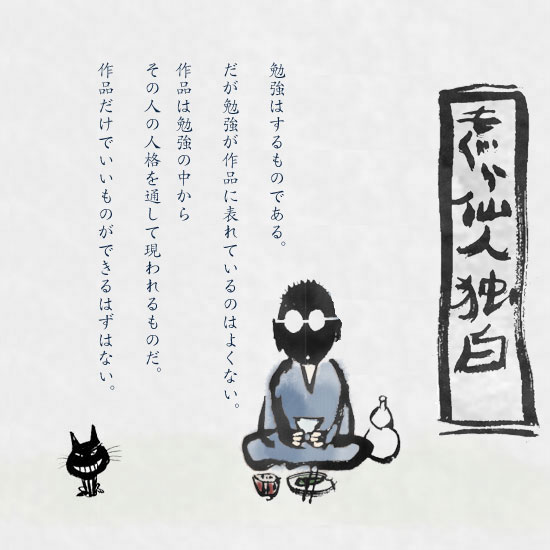 仙人独白
勉強はするものである。
だが勉強が作品に表れているのはよくない。
作品は勉強の中から
その人の人格を通して現われるものだ。
作品だけでいいものができるはずはない。